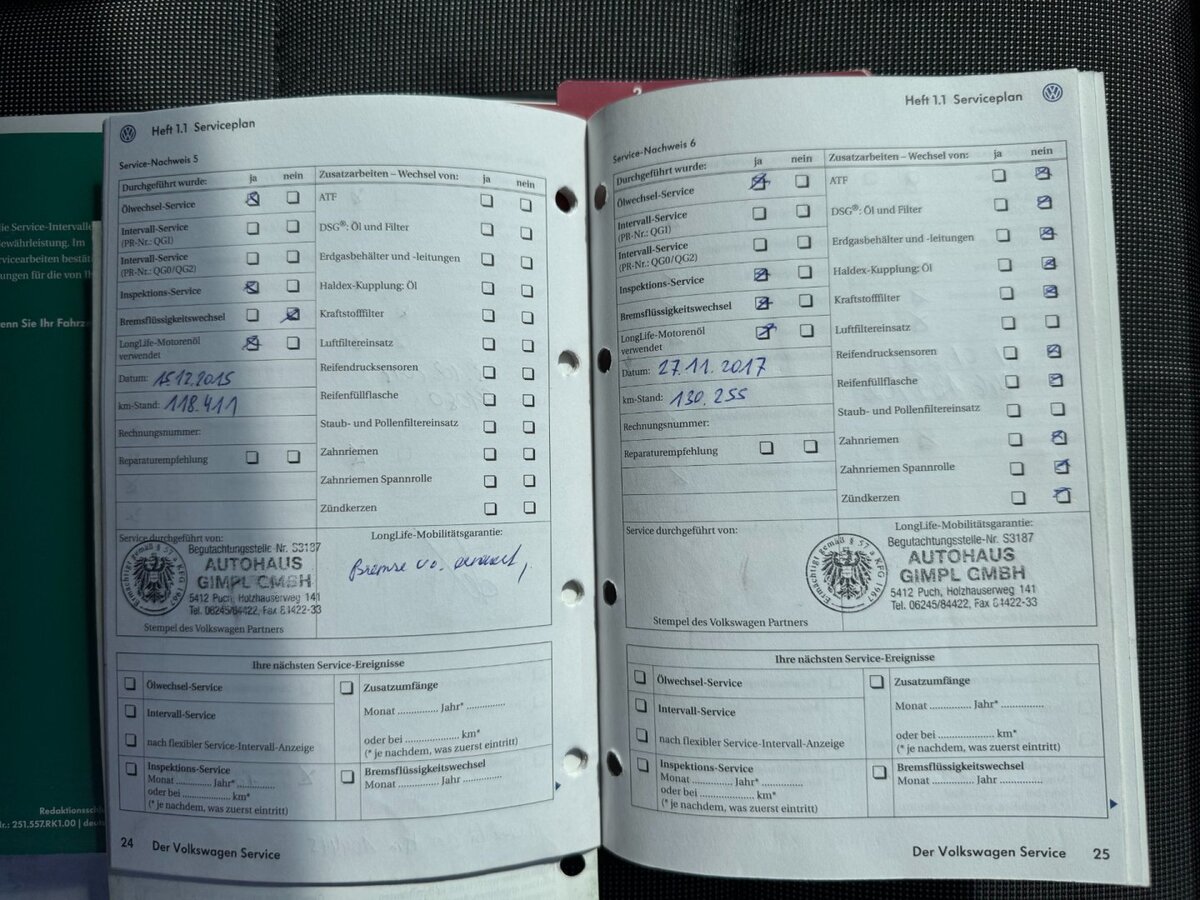 2
ie Service-Intervalle
ewährleistung. Im
vicearbeiten bestät
ungen für die von Ih
enn Sie Ihr Fahrze
Redaktionsschl
Nr.: 251.557.RK1.00 | deuts
Heft 1.1 Serviceplan
Service-Nachweis 5
Durchgeführt wurde: ja nein
Ölwechsel-Service
Intervall-Service
(PR-Nr.: QG1)
Intervall-Service
(PR-Nr.: QG0/QG2)
Inspektions-Service
Bremsflüssigkeitswechsel
LongLife-Motorenöl
verwendet
Datum: 15.12.2015
km-Stand: 118.411
Rechnungsnummer:
Reparaturempfehlung
Zusatzarbeiten – Wechsel von: ja nein
ATF
DSG®: Öl und Filter
Erdgasbehälter und -leitungen
Haldex-Kupplung: Öl
Kraftstofffilter
Luftfiltereinsatz
Reifendrucksensoren
Reifenfüllflasche
Staub- und Pollenfiltereinsatz
Zahnriemen
Zahnriemen Spannrolle
Zündkerzen
Service durchgeführt von:
Ermächtigt gemäß § 57a KFG 1967
Begutachtungsstelle-Nr. S3187
AUTOHAUS
GIMPL GMBH
5412 Puch, Holzhauserweg 141
Tel. 06245/84422, Fax 84422-33
Stempel des Volkswagen Partners
LongLife-Mobilitätsgarantie:
Bremse
Ihre nächsten Service-Ereignisse
Ölwechsel-Service
Intervall-Service
nach flexibler Service-Intervall-Anzeige
Inspektions-Service
Monat ........... Jahr* ............
oder bei ....................... km*
(* je nachdem, was zuerst eintritt)
Zusatzumfänge
Monat ............. Jahr* ............
oder bei ....................... km*
(* je nachdem, was zuerst eintritt)
Bremsflüssigkeitswechsel
Monat ............. Jahr ............
24 Der Volkswagen Service
Heft 1.1 Serviceplan
Service-Nachweis 6
Durchgeführt wurde: ja nein
Ölwechsel-Service
Intervall-Service
(PR-Nr.: QG1)
Intervall-Service
(PR-Nr.: QG0/QG2)
Inspektions-Service
Bremsflüssigkeitswechsel
LongLife-Motorenöl
verwendet
Datum: 27.11.2017
km-Stand: 130.255
Rechnungsnummer:
Reparaturempfehlung
Zusatzarbeiten – Wechsel von: ja nein
ATF
DSG®: Öl und Filter
Erdgasbehälter und -leitungen
Haldex-Kupplung: Öl
Kraftstofffilter
Luftfiltereinsatz
Reifendrucksensoren
Reifenfüllflasche
Staub- und Pollenfiltereinsatz
Zahnriemen
Zahnriemen Spannrolle
Zündkerzen
Service durchgeführt von:
Stempel des Volkswagen Partners
LongLife-Mobilitätsgarantie:
Ermächtigt gemäß § 57a KFG 1967
Begutachtungsstelle-Nr. S3187
AUTOHAUS
GIMPL GMBH
5412 Puch, Holzhauserweg 141
Tel. 06245/84422, Fax 84422-33
Ihre nächsten Service-Ereignisse
Ölwechsel-Service
Intervall-Service
nach flexibler Service-Intervall-Anzeige
Inspektions-Service
Monat ........... Jahr* ............
oder bei ....................... km*
(* je nachdem, was zuerst eintritt)
Zusatzumfänge
Monat ............. Jahr* ............
oder bei ....................... km*
(* je nachdem, was zuerst eintritt)
Bremsflüssigkeitswechsel
Monat ............. Jahr ............
Der Volkswagen Service 25